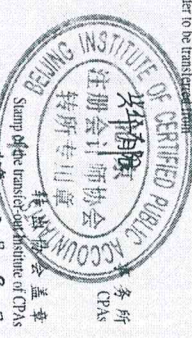 der to be transferred
事务所
CPAs
BEIJING INSTITUTE OF CERTIFIED PUBLIC ACCOUNTANTS
注册会计师协会
转所专用章
转出协会盖章
Stamp of the transfer-out Institute of CPAs